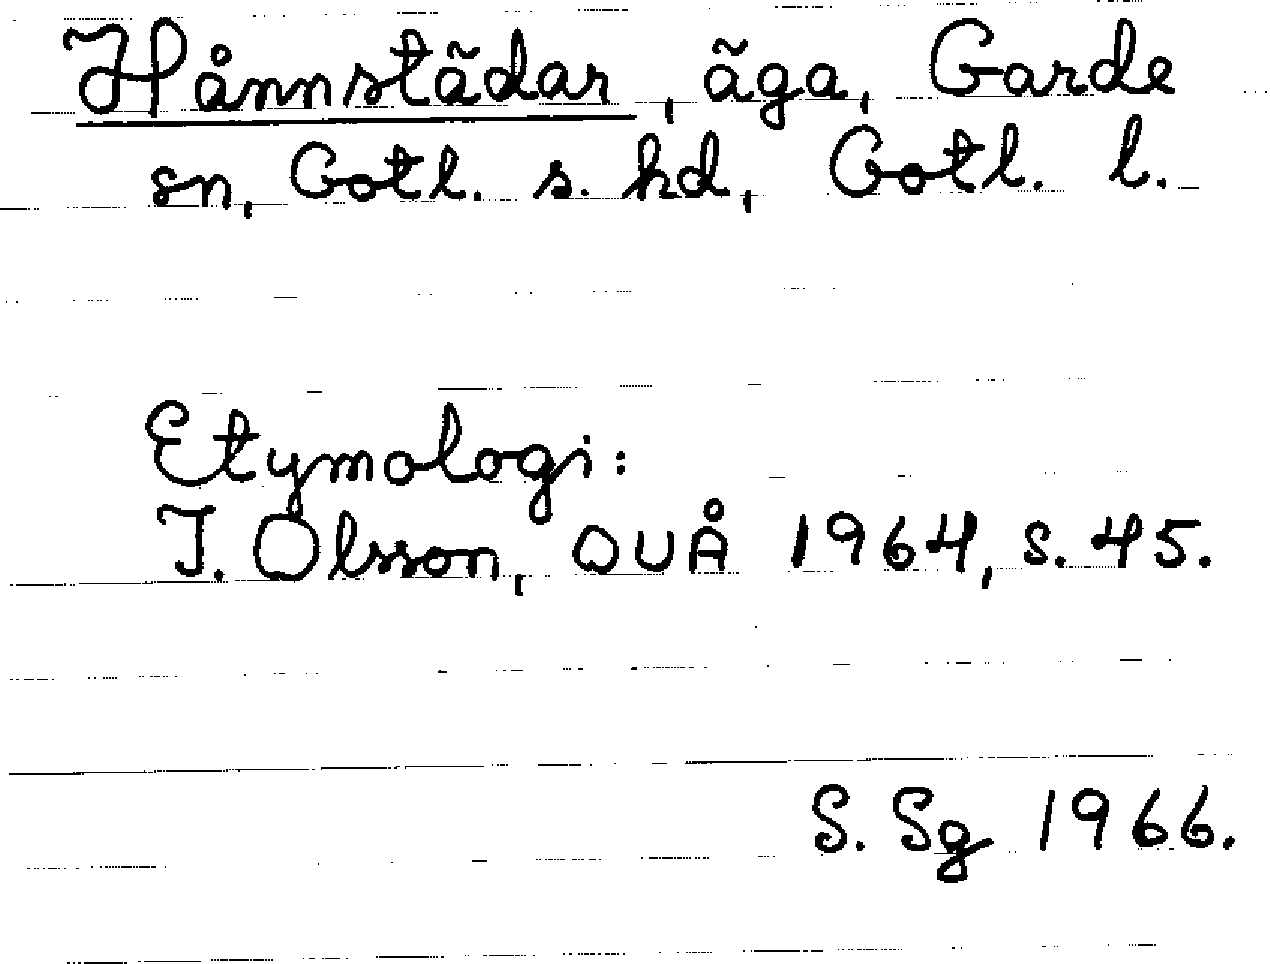 Hånnstãdar, ãga, Garde
sn, Gotl. s. hd, Gotl. l.
Etymologi:
I. Olsson, OUÅ 1964, s. 45.
S. Sg 1966.